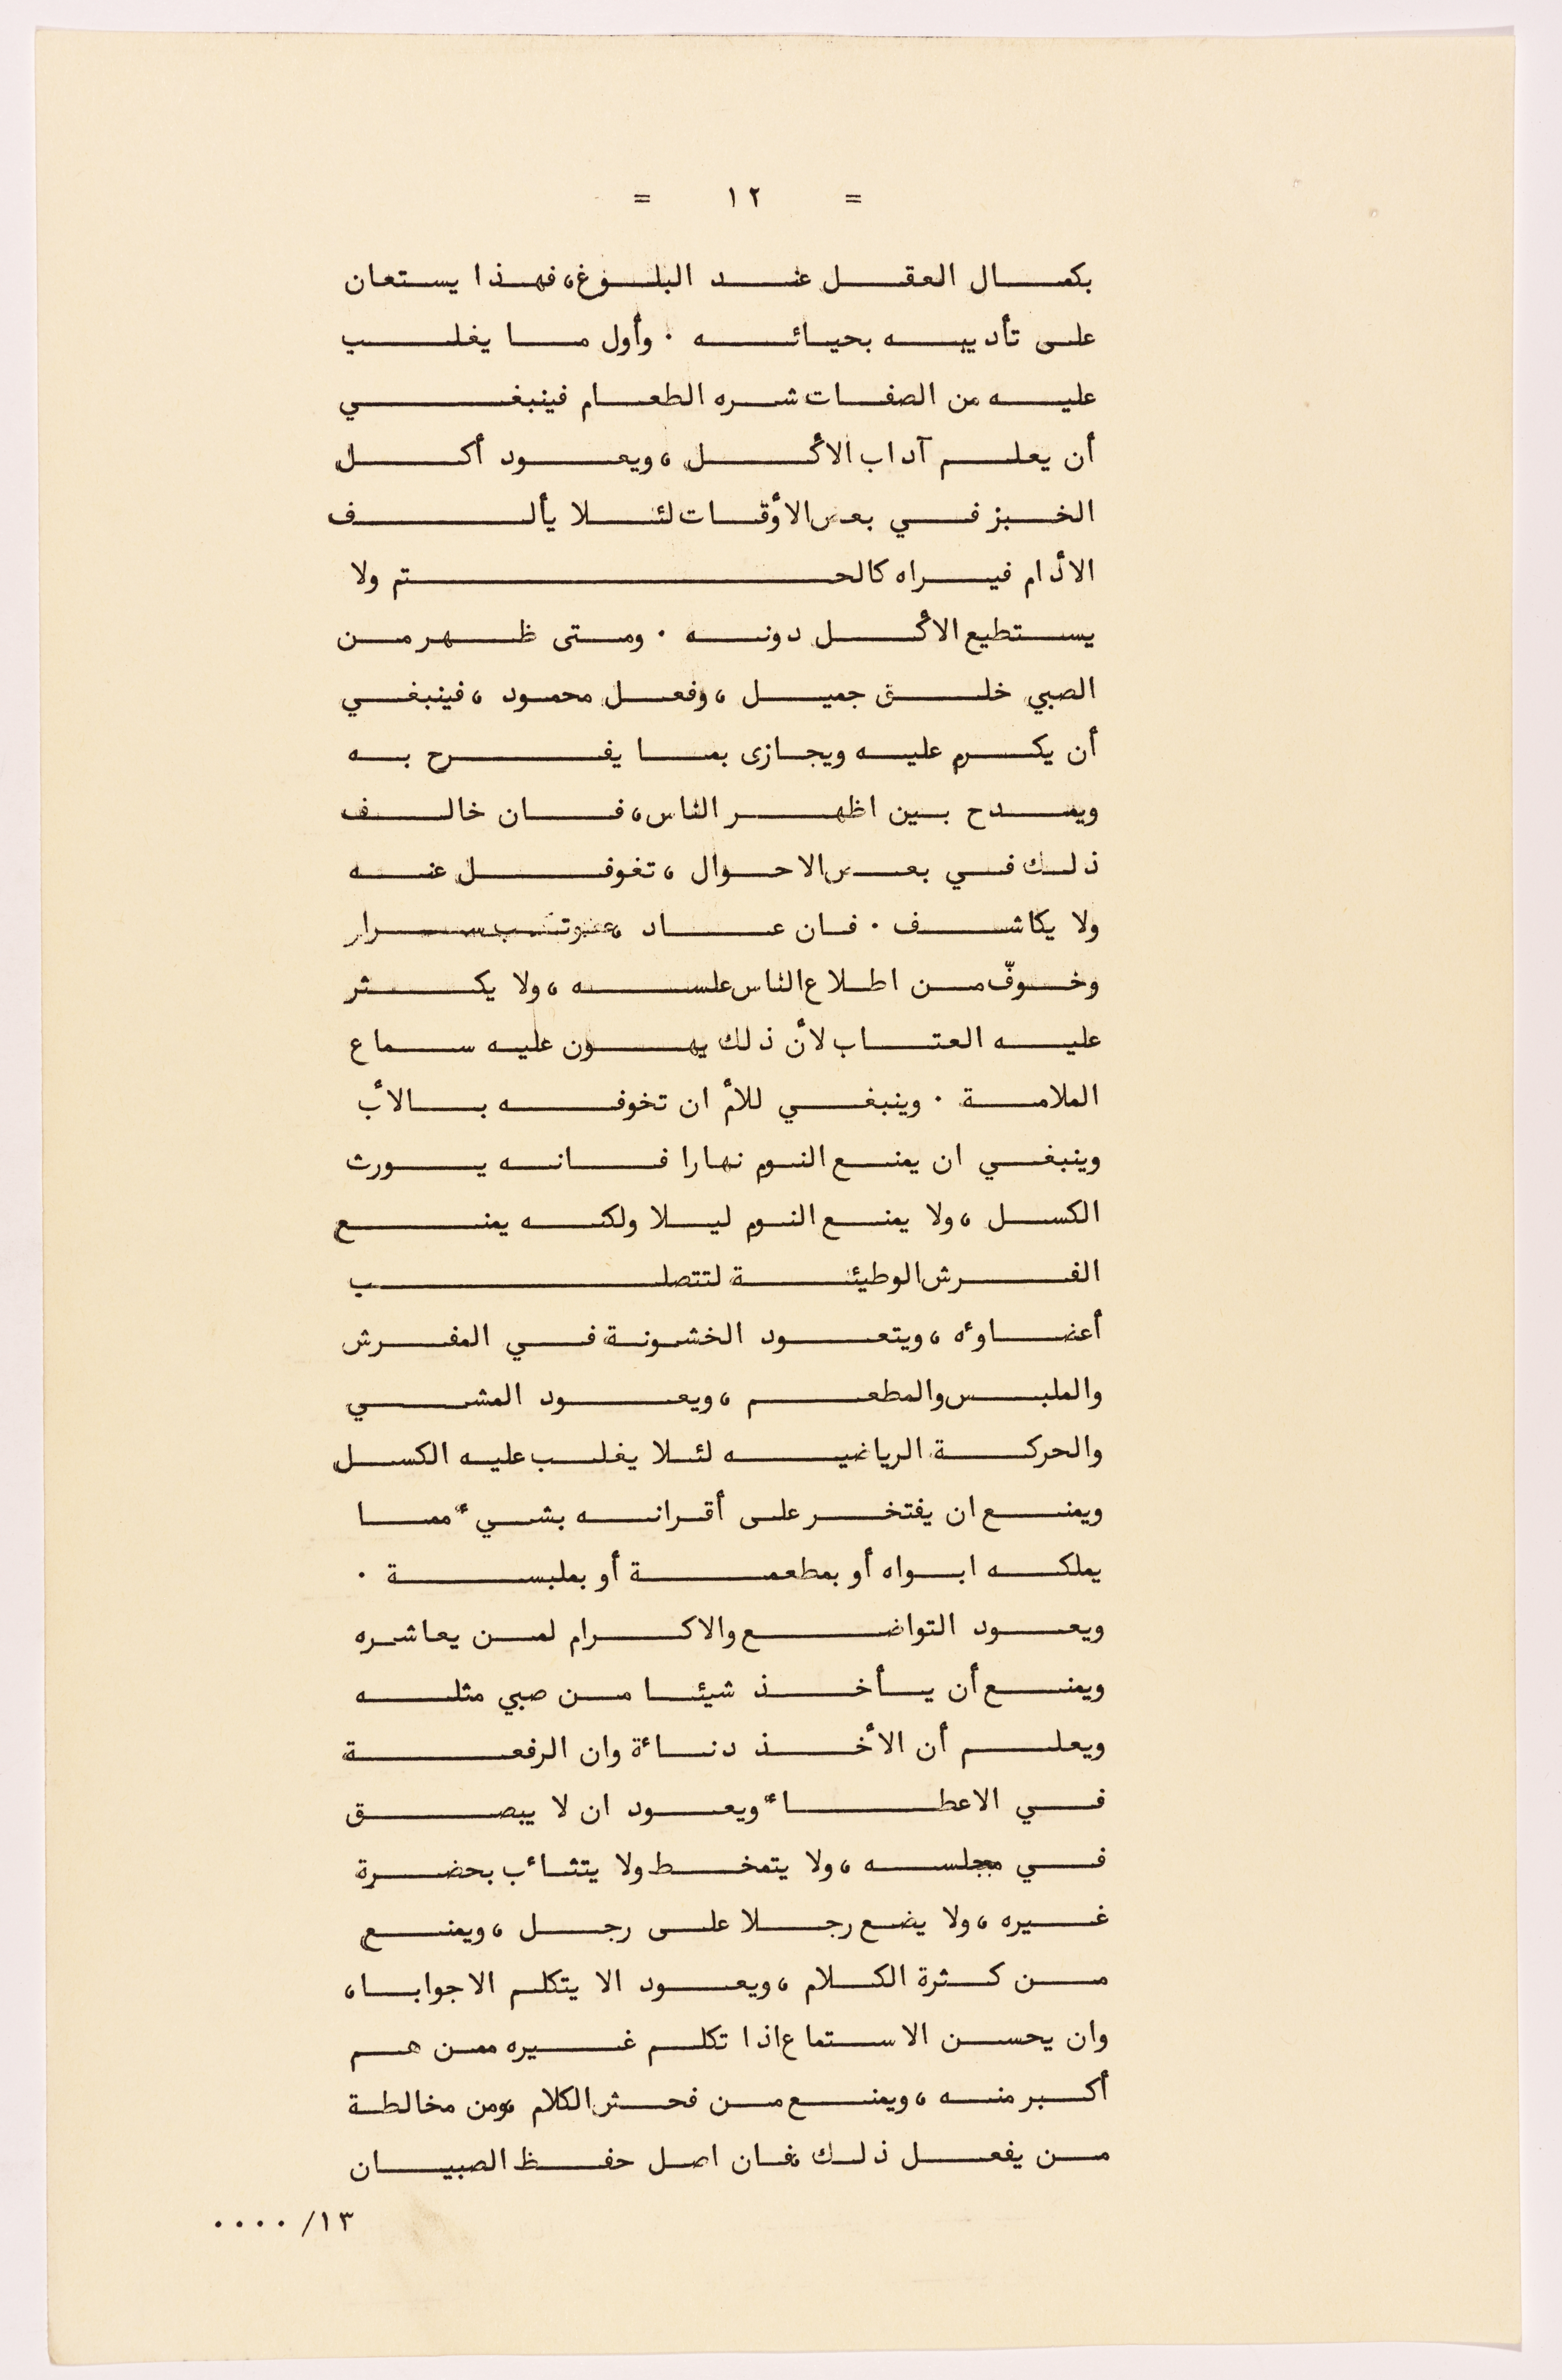 = ١٢ =
بكمال العقل عند البلوغ، فهذا يستعان
على تأديبه بحيائه . وأول ما يغلب
عليه من الصفات شره الطعام فينبغي
أن يعلم آداب الأكل ، ويعود أكل
الخبز في بعض الأوقات لئلا يألف
الأدام فيراه كالحتم ولا
يستطيع الأكل دونه . ومتى ظهر من
الصبي خلق جميل ، وفعل محمود ، فينبغي
أن يكرم عليه ويجازى بما يفرح به
ويمدح بين اظهر الناس، فان خالف
ذلك في بعض الاحوال ، تغوفل عنه
ولا يكاشف . فان عاد ، عوتب سرار
وخوفّ من اطلاع الناس علسه ، ولا يكثر
عليه العتاب لأن ذلك يهون عليه سماع
الملامة . وينبغي للأم ان تخوفه بالأب
وينبغي ان يمنع النوم نهارا فانه يورث
الكسل ، ولا يمنع النوم ليلا ولكنه يمنع
الفرش الوطيئة لتتصلب
أعضاوءه ، ويتعود الخشونة في المفرش
والملبس والمطعم ، ويعود المشي
والحركة الرياضيه لئلا يغلب عليه الكسل
ويمنع ان يفتخر على أقرانه بشيء مما
يملكه ابواه أو بمطعمة أو بملبسة .
ويعود التواضع والاكرام لمن يعاشره
ويمنع أن يأخذ شيئا من صبي مثله
ويعلم أن الأخذ دناءة وان الرفعة
في الاعطاء ويعود ان لا يبصق
في مجلسه ، ولا يتمخط ولا يتثاءب بحضرة
غيره ، ولا يضع رجلا على رجل ، ويمنع
من كثرة الكلام ، ويعود الا يتكلم الا جوابا ،
وان يحسن الاستماع اذا تكلم غيره ممن هم
أكبر منه ، ويمنع من فحش الكلام ،ومن مخالطة
من يفعل ذلك ،فان اصل حفظ الصبيان
١٣/ ....